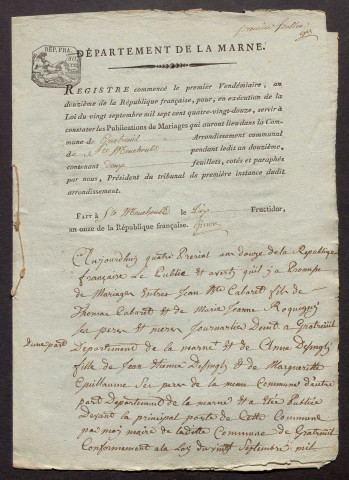 premier feuillet
RÉP. FRA.
DÉPARTEMENT DE LA MARNE.
REGISTRE commencé le premier Vendémiaire, an
douzième de la République française, pour, en exécution de la
Loi du vingt septembre mil sept cent quatre-vingt-douze, servir à
constater les Publications de Mariages qui auront lieu dans la Com-
mune de Gratreuil Arrondissement communal
de Ste Menehould pendant ledit an douzième,
contenant deux feuillets, cotés et paraphés
par nous, Président du tribunal de première instance dudit
arrondissement.
FAIT à Ste Menehould le Fructidor,
an onze de la République française.
Aujourdhuy quatre Prerial an douze de la Republique
française Le Publié et averty quil y a Promesse
de Mariages Entres Jean Bte Cabaret fils de
Thomas Cabaret et de Marie Jeanne Roquigny
ses perre et merre Journailier demt a Gratreuil
dune part Departement de la marne et de Anne Desingly
fille de Jean Etienne Desingly et de Margueritte
Guillaume Ses perre de la meme Commune d'autre
part Departement de la marne et a Etée Publiée
Devant la principal porte de Cette Commune
par moy maire de laditte Commune de Gratreuil
Conformement a la Loy du vingt Septembre mil